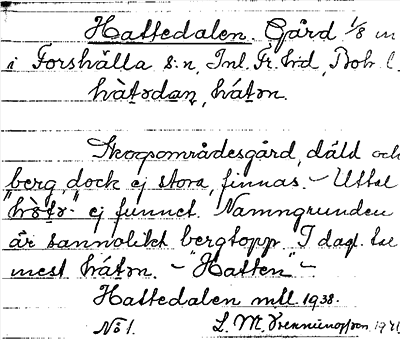 Hattedalen. Gård 1/8 m
i Forshälla s:n, Inl. Fr. hd, Boh. l.
hàtədan, hátən.
Skogsområdesgård, däld och
berg, dock ej stora, finnas. – Uttal
"hòtə-" ej funnet. Namngrunden
är sannolikt bergtopp. I dagl. tal
mest hátən. – "Hatten" –
Hattedalen mtl. 1938.
No 1. L. M.